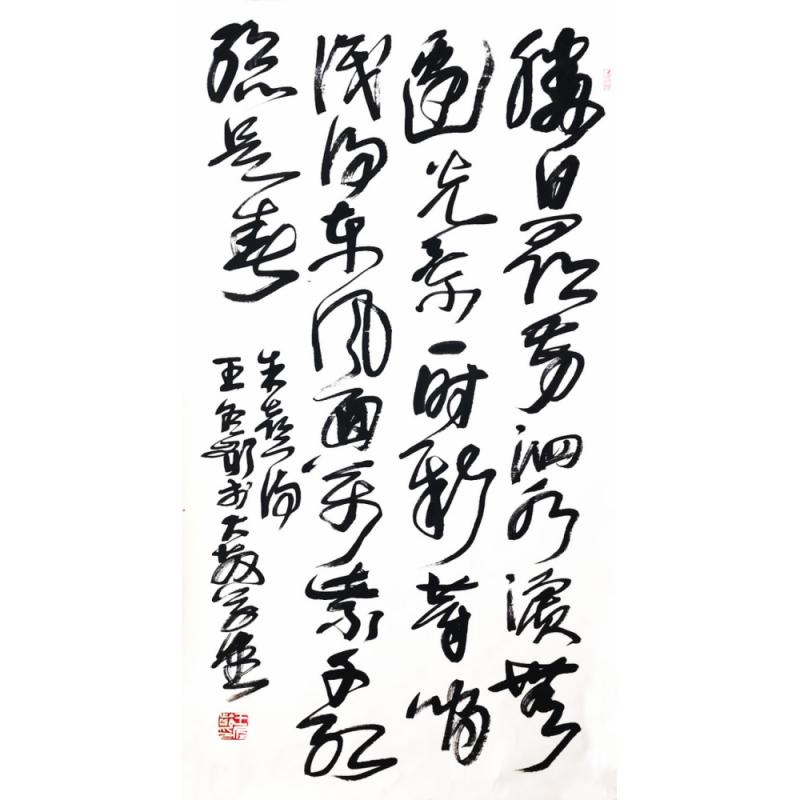 勝日尋芳泗水濱無
邊光景一時新等閒
識得東風面萬紫千紅
總是春
朱熹詩
王